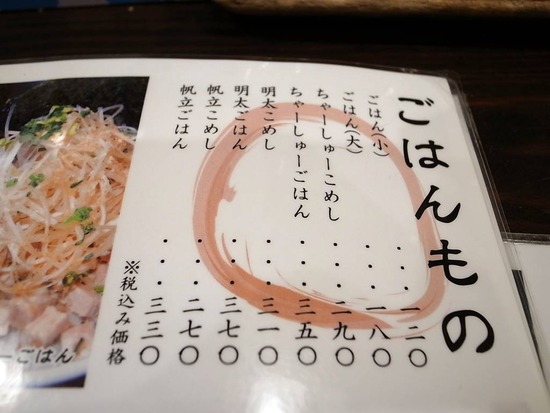 ごはんもの
ごはん(小)・・・一二〇
ごはん(大)・・・一八〇
ちゃーしゅーこめし・・・二九〇
ちゃーしゅーごはん・・・三五〇
明太こめし・・・三一〇
明太ごはん・・・三七〇
帆立こめし・・・二七〇
帆立ごはん・・・三三〇
※税込み価格
ーごはん